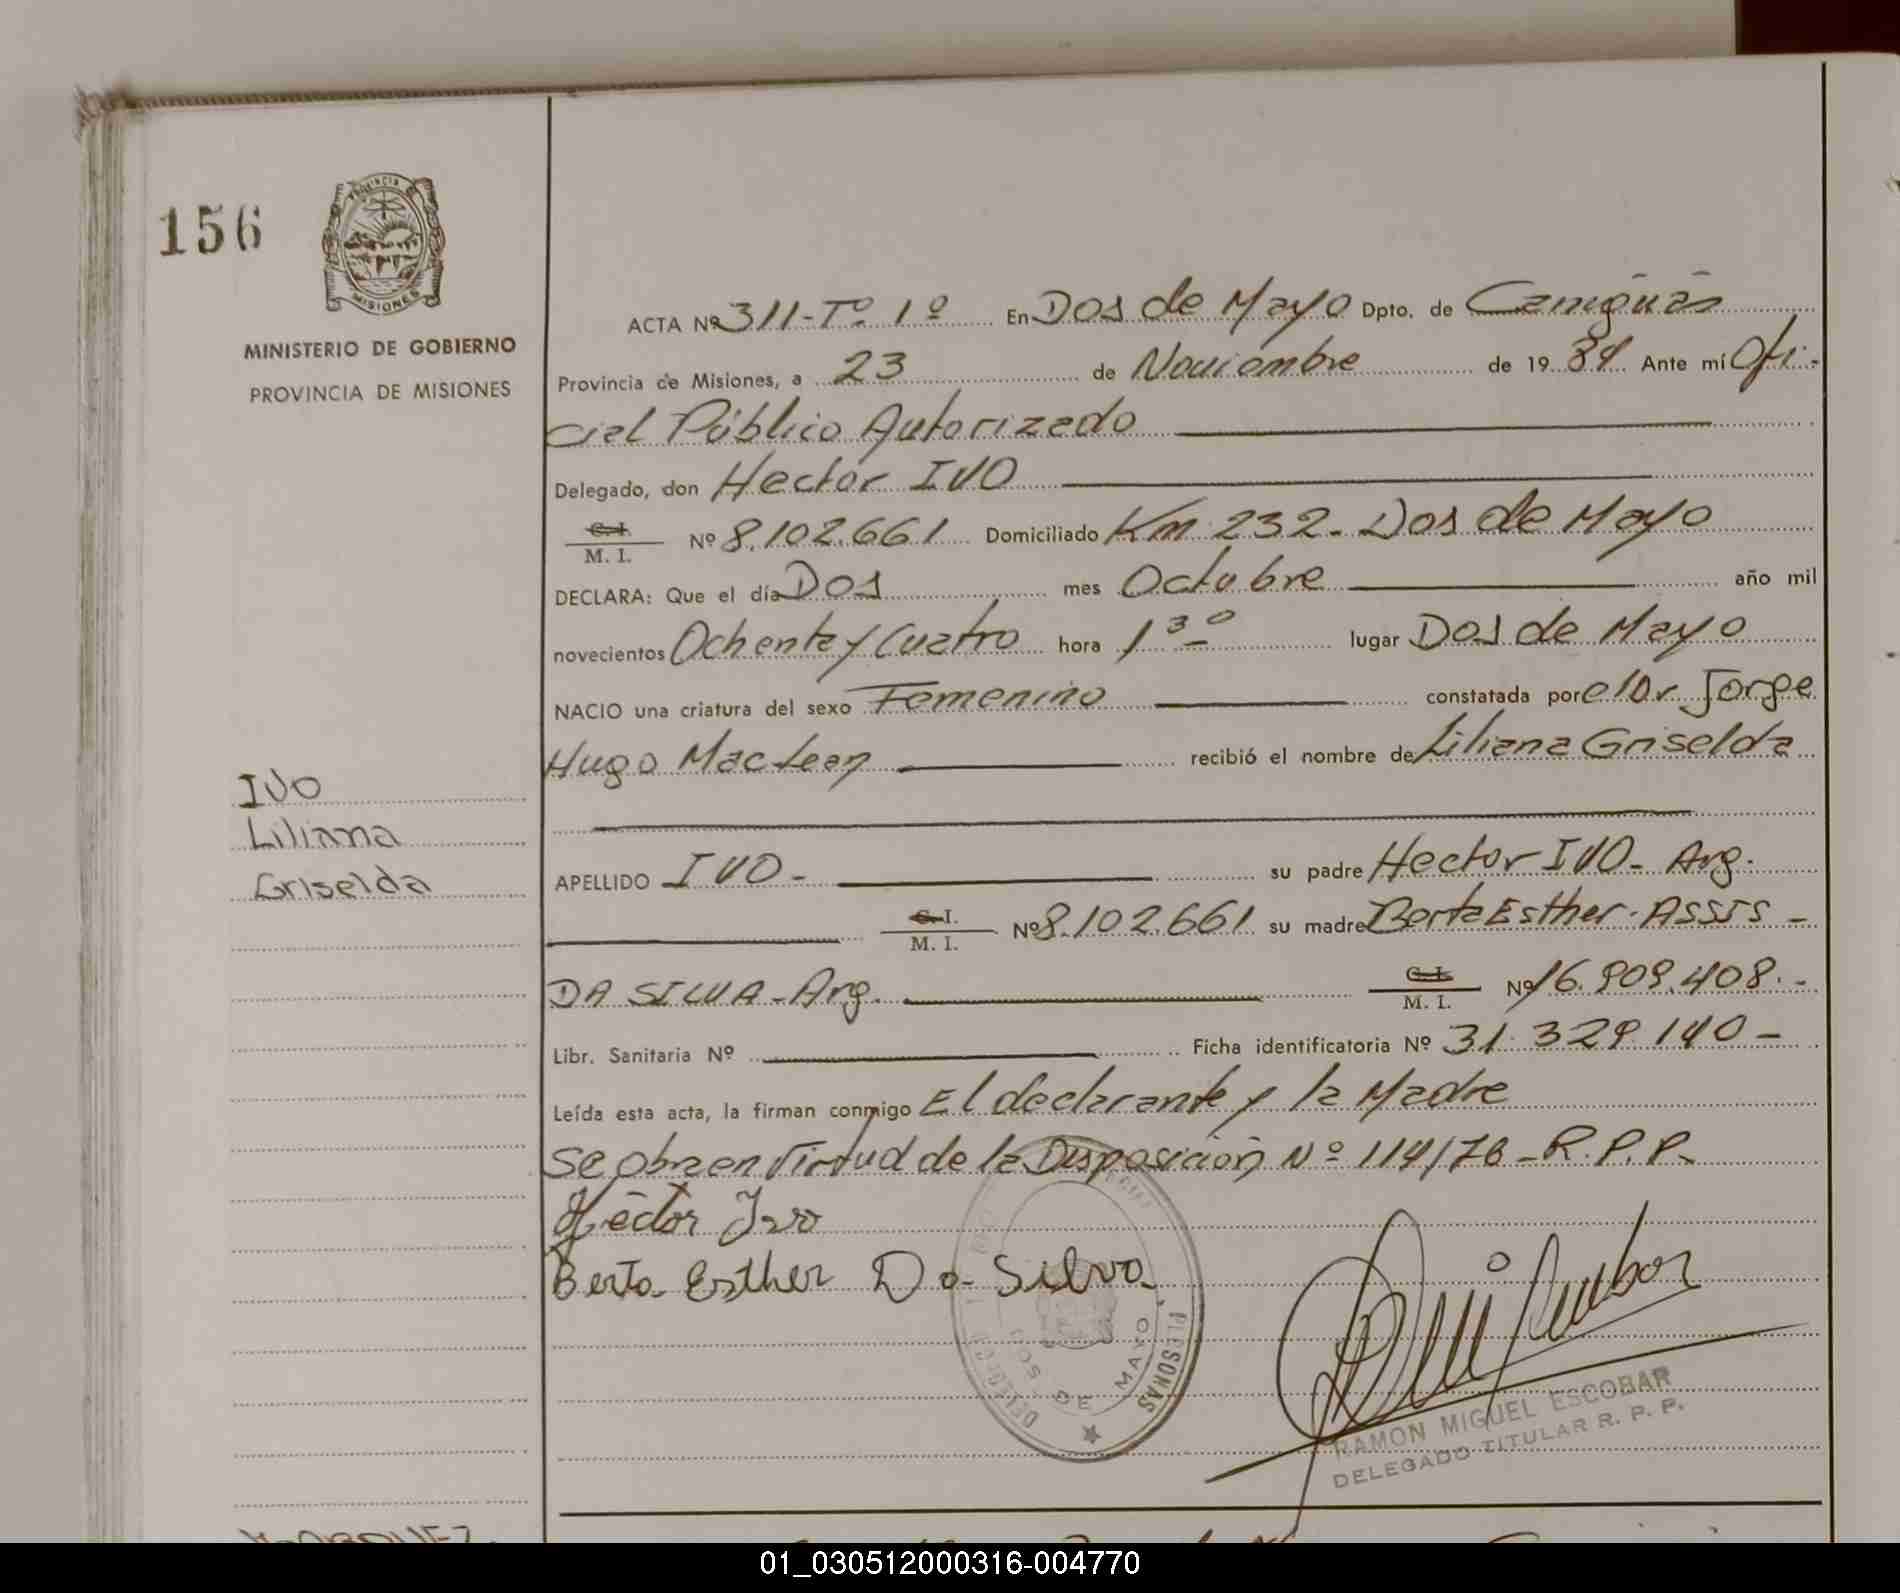 156
PROVINCIA DE
MISIONES
MINISTERIO DE GOBIERNO
PROVINCIA DE MISIONES
ACTA Nº 311-Tº 1º En Dos de Mayo Dpto. de Cainguás
Provincia de Misiones, a 23 de Noviembre de 1984 Ante mí Ofi-
cial Público Autorizado
Delegado, don Hector IVO
C. I.
M. I. Nº 8.102.661 Domiciliado Km 232- Dos de Mayo
DECLARA: Que el día Dos mes Octubre año mil
novecientos Ochenta y Cuatro hora 1 30 lugar Dos de Mayo
NACIO una criatura del sexo Femenino constatada por el Dr Jorge
Hugo Mac Lean recibió el nombre de Liliana Griselda
APELLIDO IVO- su padre Hector IVO- Arg.
C. I.
M. I. Nº 8.102.661 su madre Berta Esther ASSIS -
DA SILVA-Arg. C. I.
M. I. Nº 16.909.408.-
Libr. Sanitaria Nº Ficha identificatoria Nº 31.329.140-
Leída esta acta, la firman conmigo El declarante y la Madre
Se obra en Virtud de la Disposición Nº 114/76-R.P.P.
Héctor Ivo
Berta Esther Da Silva
IVO
Liliana
Griselda
PERSONAS
DOS DE MAYO
RAMON MIGUEL ESCOBAR
DELEGADO TITULAR R. P. P.
01_030512000316-004770